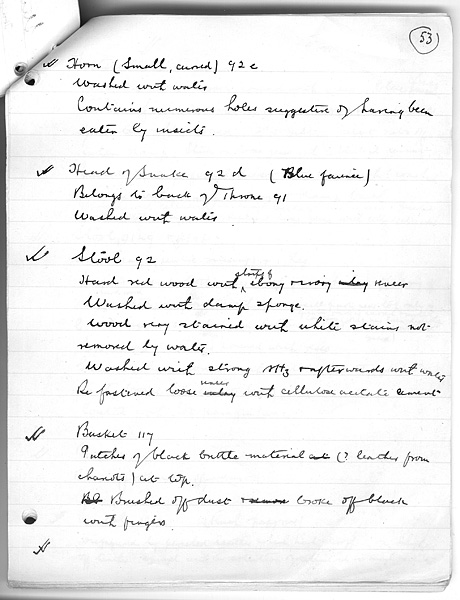 53
Horn (small, curved) 92c
Washed with water
Contains numerous holes suggestive of having been
eaten by insects.
Head of Snake 92d (Blue faience)
Belongs to back of Throne 91
Washed with water
Stool 92
Hard red wood with ebony & ivory veneer
Washed with damp sponge.
Wood very stained with white stains not
removed by water.
Washed with strong NH3 & afterwards with water
Re fastened loose veneer with cellulose acetate cement
Basket 117
Patches of black brittle material (? leather from
chariots) at top.
Brushed off dust broke off black
with fingers